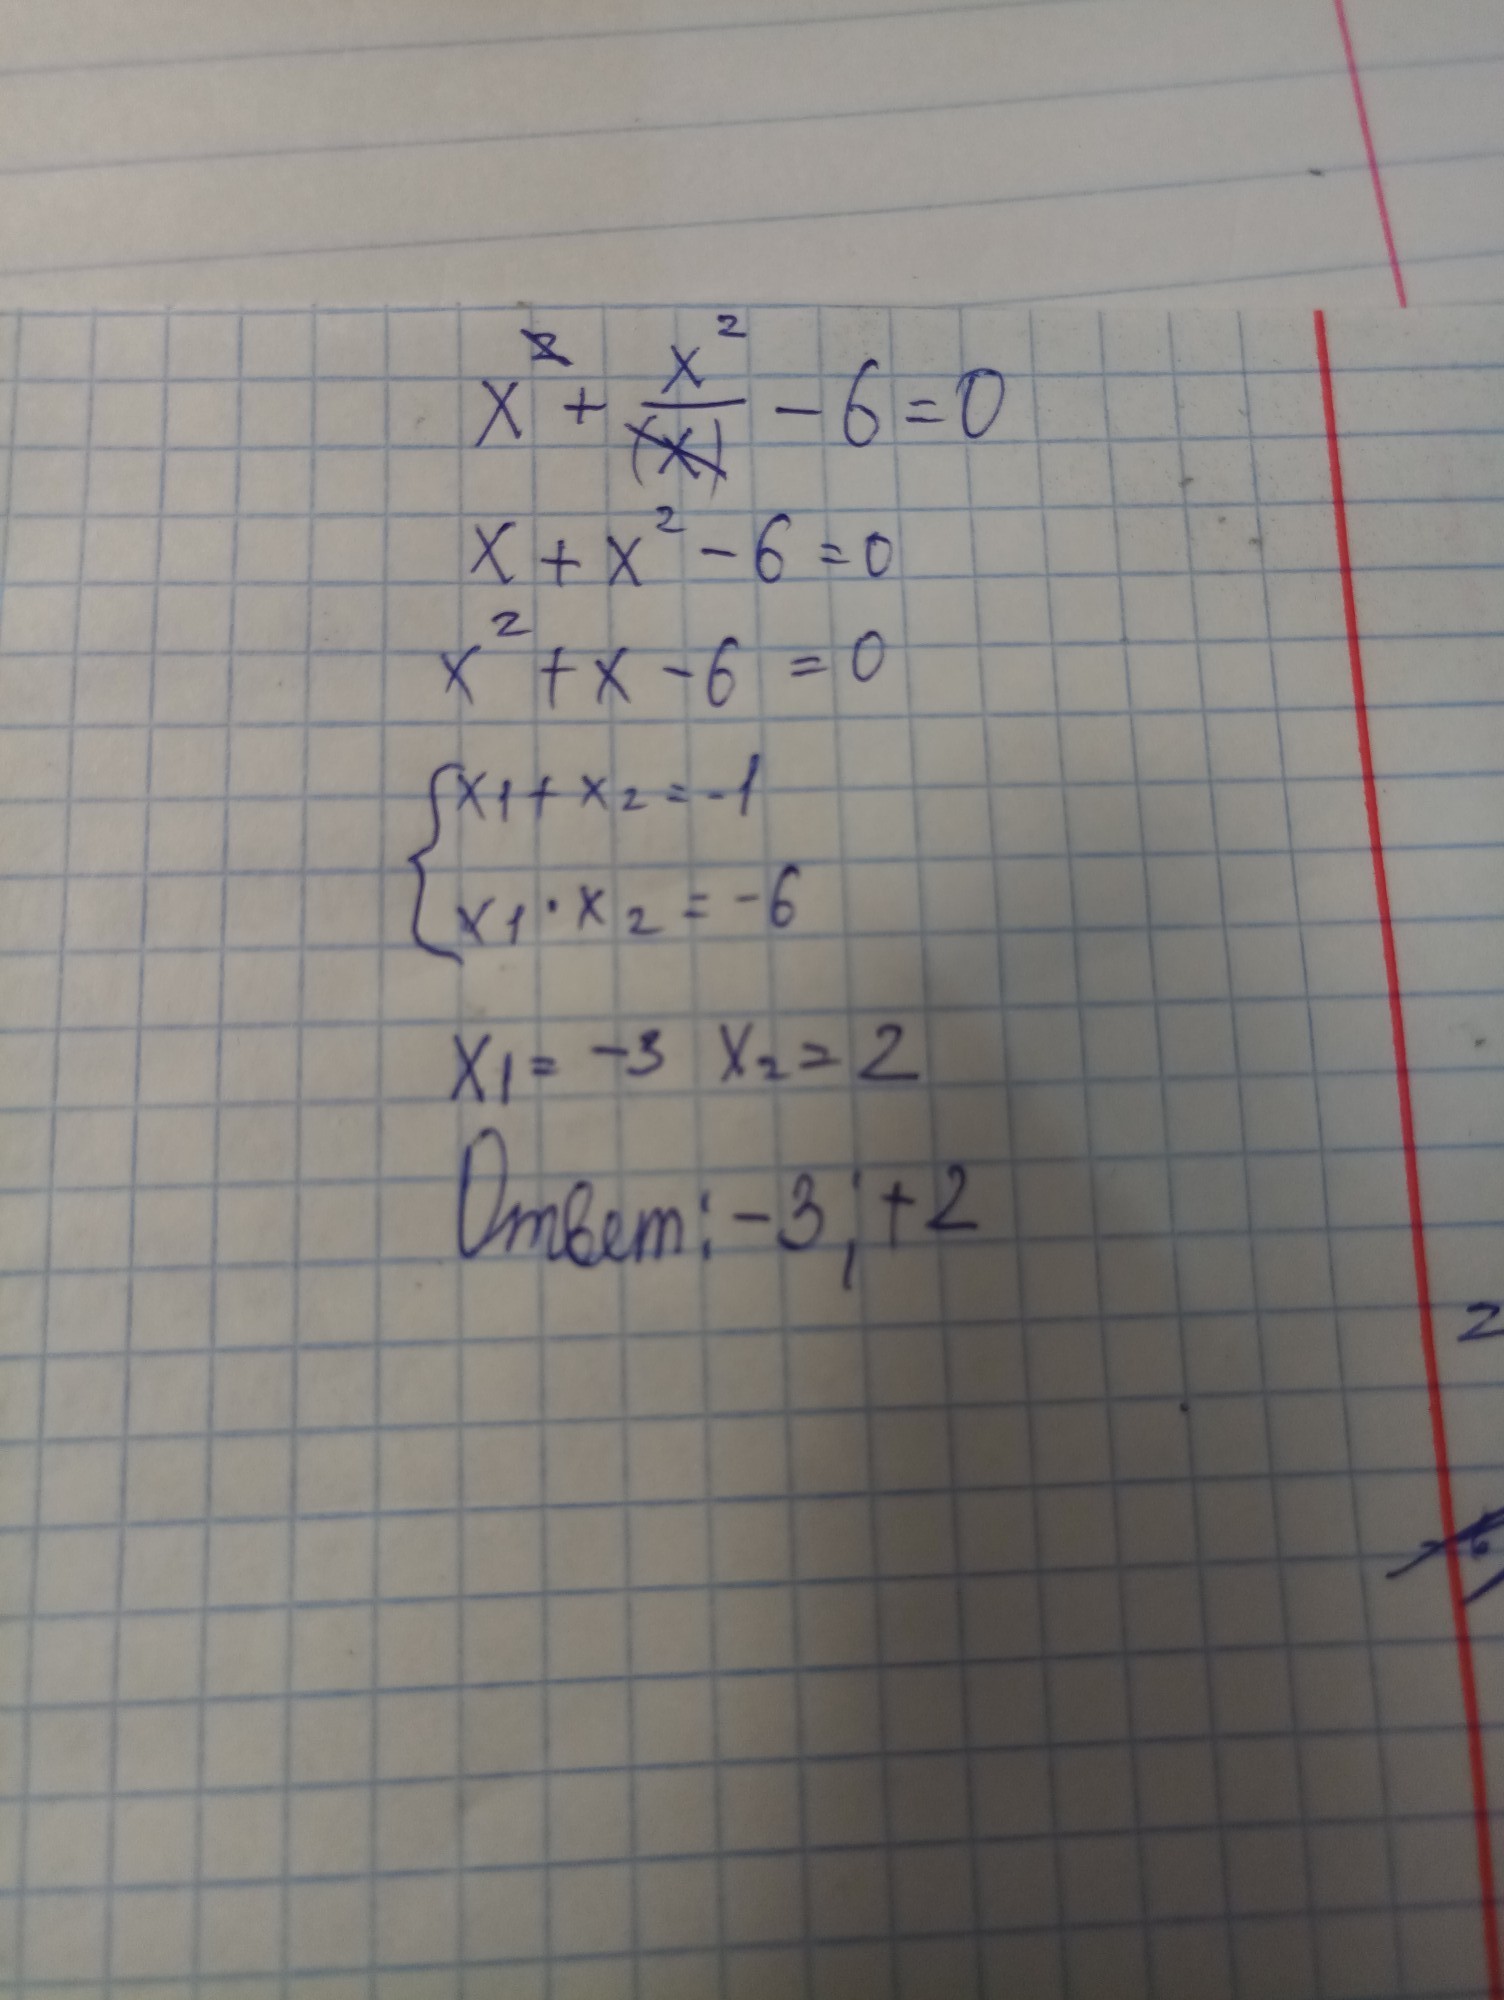 x² + x²/(x) - 6 = 0
x + x² - 6 = 0
x² + x - 6 = 0
x1 + x2 = -1
x1 · x2 = -6
x1 = -3 x2 = 2
Ответ: -3; +2
2